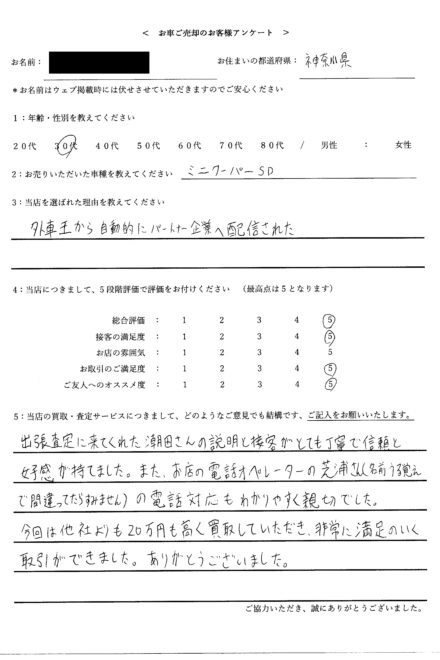 < お車ご売却のお客様アンケート >
お名前： お住まいの都道府県： 神奈川県
*お名前はウェブ掲載時には伏せさせていただきますのでご安心ください
1：年齢・性別を教えてください
20代 30代 40代 50代 60代 70代 80代 / 男性 ： 女性
2：お売りいただいた車種を教えてください ミニクーパーSD
3：当店を選ばれた理由を教えてください
外車王から自動的にパートナー企業へ配信された
4：当店につきまして、5段階評価で評価をお付けください （最高点は5となります）
総合評価 ： 1 2 3 4 5
接客の満足度 ： 1 2 3 4 5
お店の雰囲気 ： 1 2 3 4 5
お取引のご満足度 ： 1 2 3 4 5
ご友人へのオススメ度 ： 1 2 3 4 5
5：当店の買取・査定サービスにつきまして、どのようなご意見でも結構です、ご記入をお願いいたします。
出張査定に来てくれた潮田さんの説明と接客がとても丁寧で信頼と
好感が持てました。また、お店の電話オペレーターの芝浦さん(名前うろ覚え
で間違ってたらすみません)の電話対応もわかりやすく親切でした。
今回は他社よりも20万円も高く買取していただき、非常に満足のいく
取引ができました。ありがとうございました。
ご協力いただき、誠にありがとうございました。